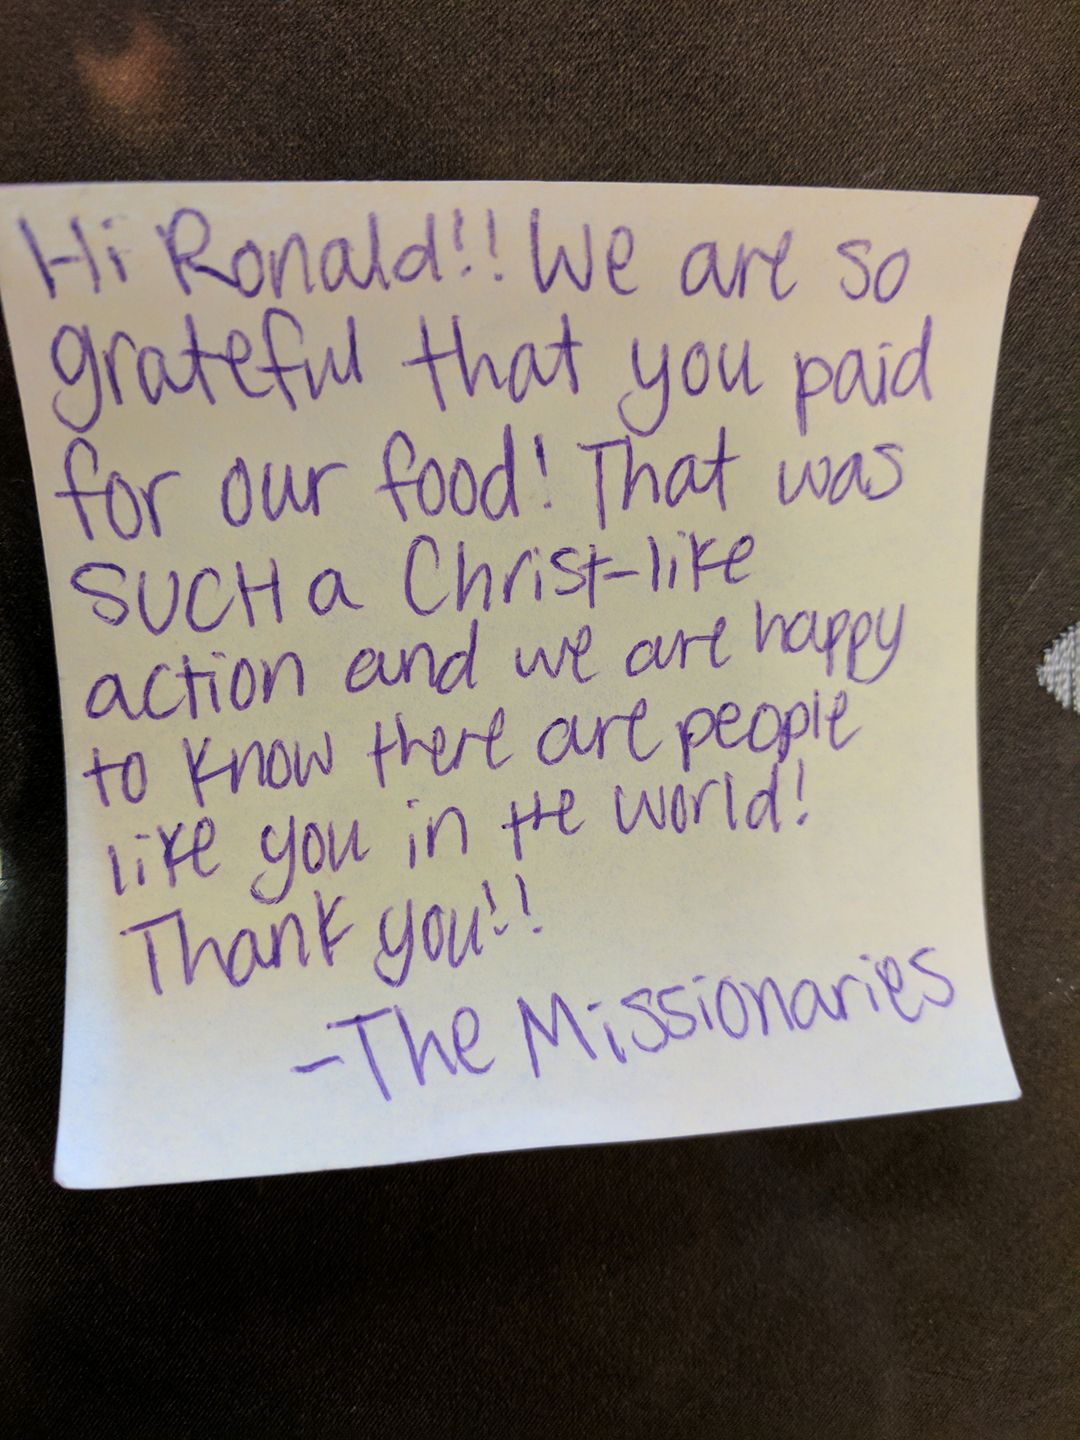 Hi Ronald!! We are so
grateful that you paid
for our food! That was
SUCH a Christ-like
action and we are happy
to know there are people
like you in the world!
Thank you!!
-The Missionaries